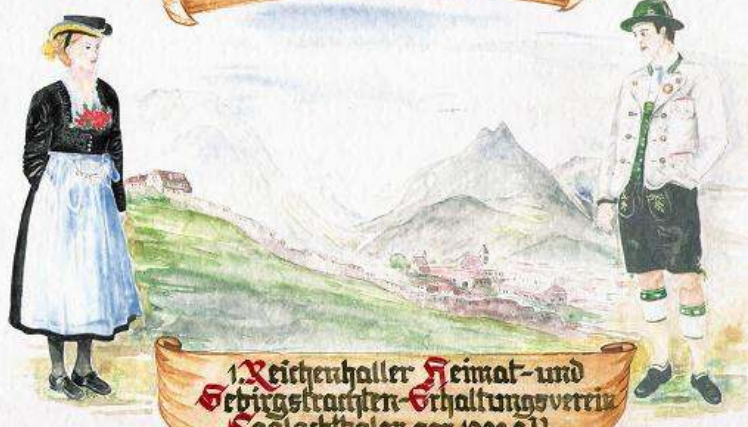 1. Reichenhaller Heimat- und
Gebirgstrachten-Erhaltungsverein
Saalachthaler